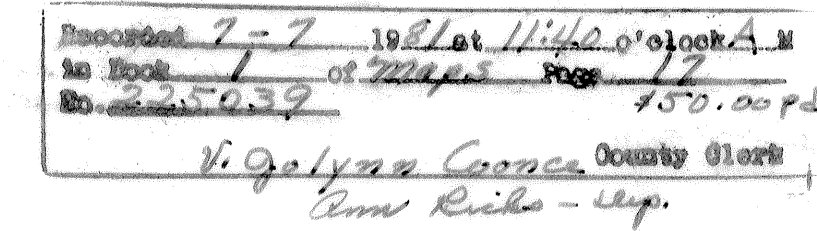 Recorded 7-7 1981 at 11:40 o'clock A M
in Book 1 of Maps Page 17
No. 225039 $50.00 pd
V. Jolynn Coonce County Clerk
Ann Ricks - Dep.